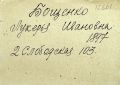 Бощенко
Лукерья Ивановна
1897
2 Слободская 103.